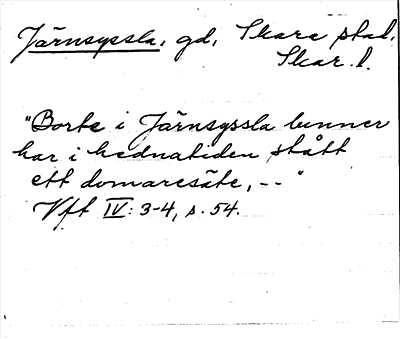 Järnsyssla, gd, Skara stad,
Skar. l.
"Borte i Järnsyssla
har i hednatiden stått
ett domaresäte, -- "
Vft IV: 3-4, s. 54.